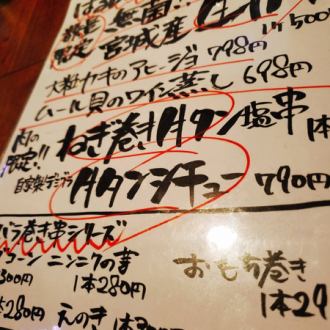 無菌
限定 宮城産
大粒カキのアヒージョ 798円
ムール貝のワイン蒸し 698円
ねぎ巻き牛タン塩串
限定!!
自家製デミグラ
牛タンシチュー 790円
巻き串シリーズ
ニンニクの芽
300円 1本280円
おもち巻き
280円 えのき